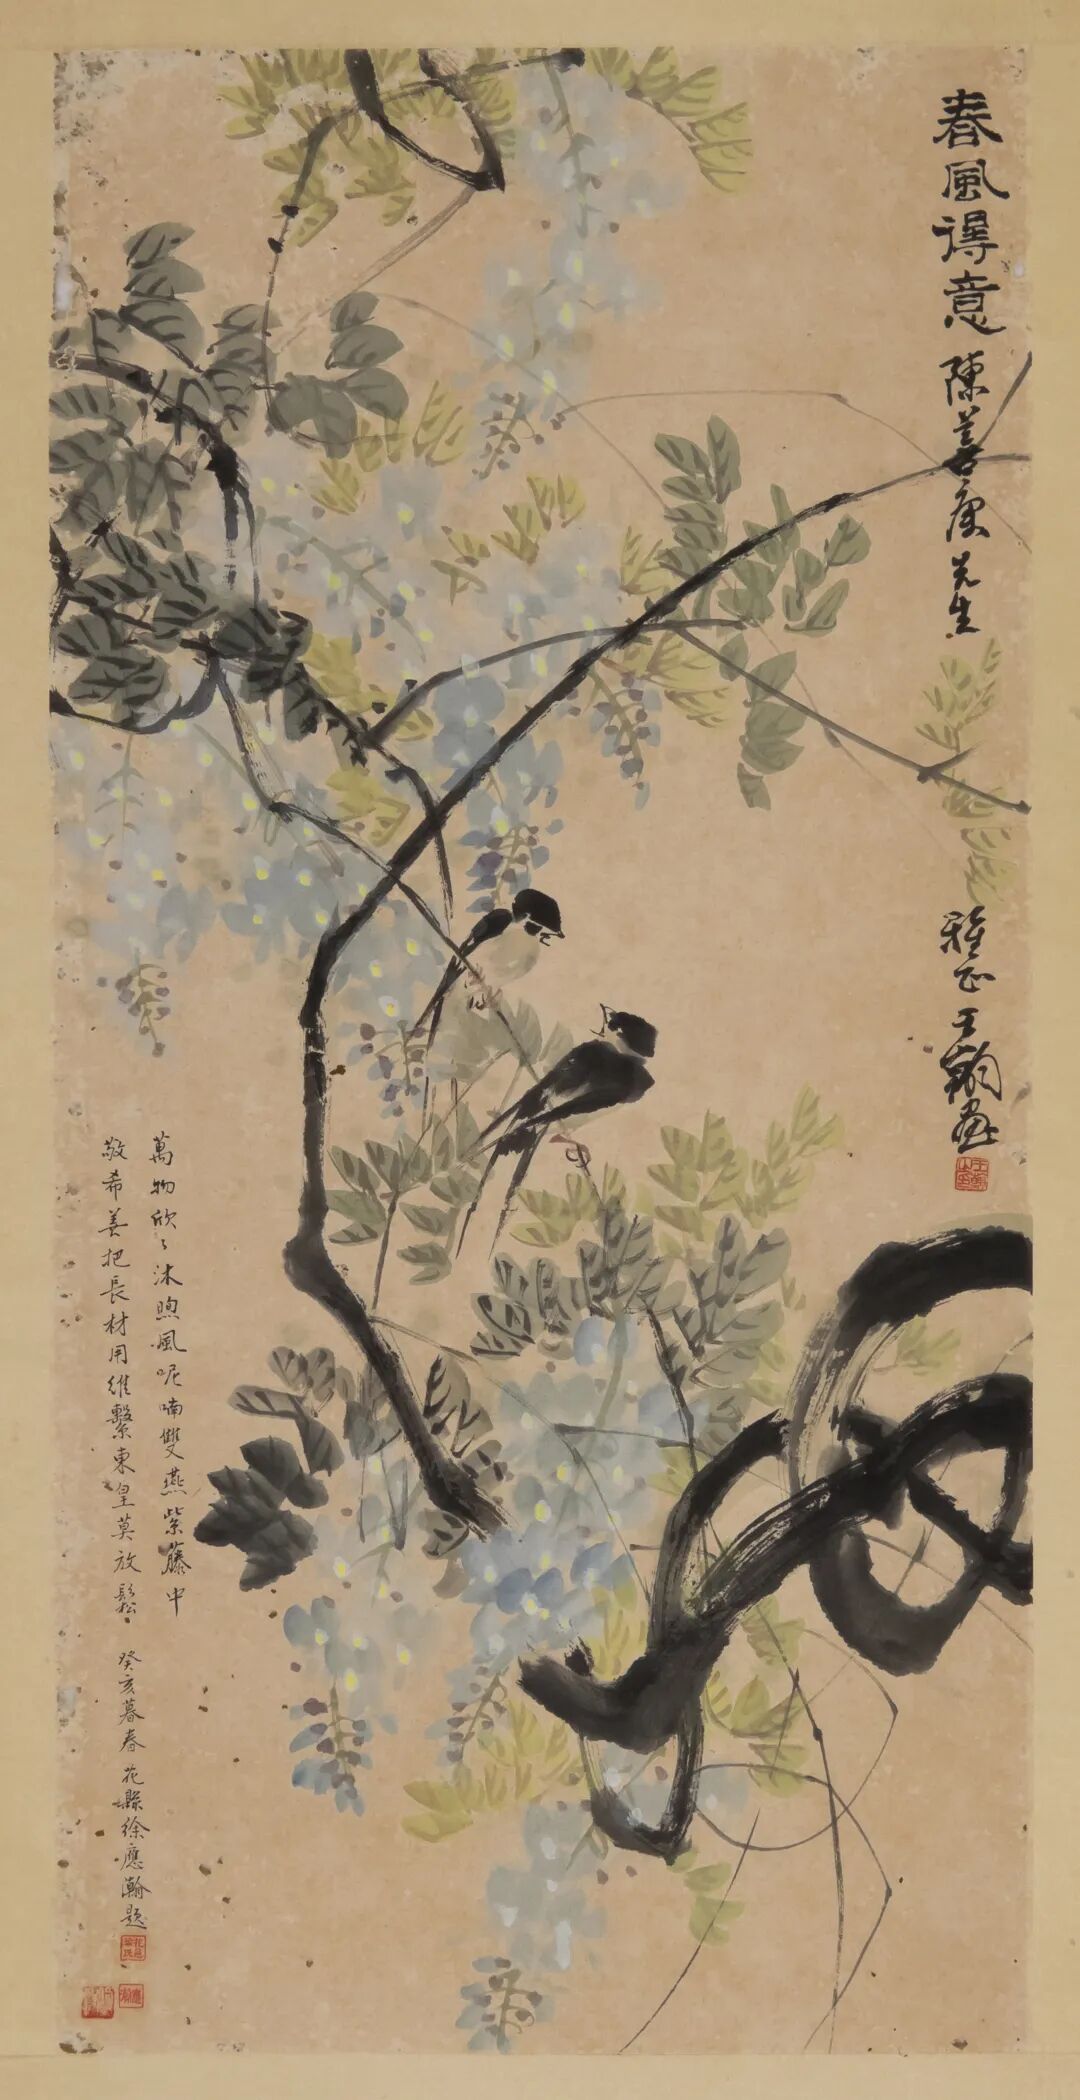 春風得意
陳善康先生
雅正 王翰畫
萬物欣〻沐煦風呢喃雙燕紫藤中
敬希善把長材用維繫東皇莫放鬆
癸亥暮春花縣徐應瀚題